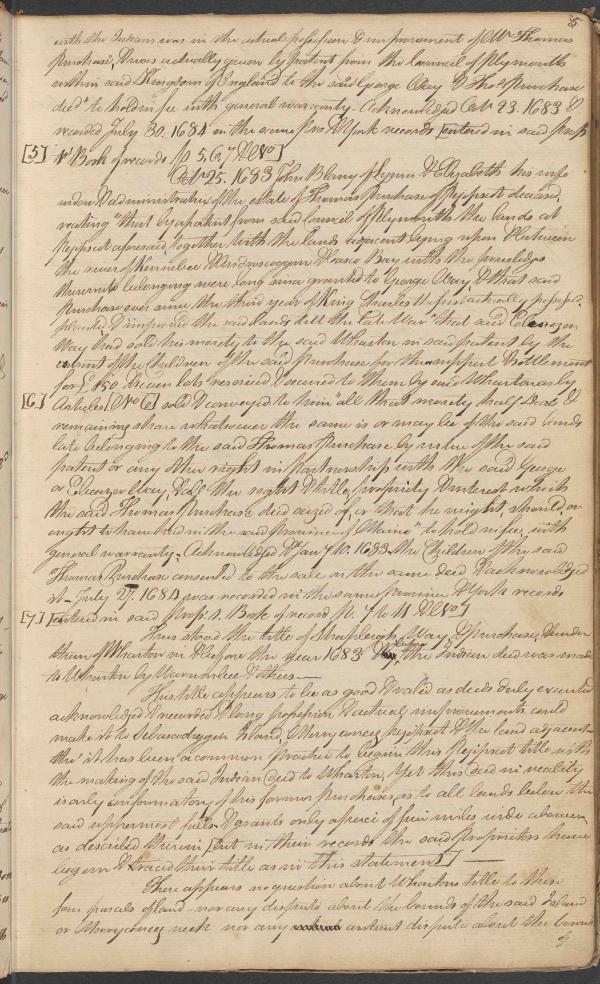 5
with the Indians was in the actual possession & improvement of Mr Thomas
Purchase, & was actually given by patent from the Council of Plymouth
within said Kingdom of England to the said George Way & Thos Purchase
decd" to hold in fee with general warranty - Acknowledged Octr 23. 1683 &
recorded July 30. 1684 in the same Pro. York records [entered in said prop
[5] rs' Book of records p. 5, 6, 7 & No
Octr 25. 1683 John Blany of Lynn & Elizabeth his wife
widow & administratrix of the estate of Thomas Purchase of Pejepscot deceased,
reciting "that by a patent from said Council of Plymouth the lands at
Pejepscot aforesaid, together with the lands adjacent lying upon & between
the river of Kennebec & Casco Bay with the privileges
thereunto belonging were long since granted to George Way & that said
Purchase ever since the third year of King Charles the first actually possessed,
planted & improved the said lands till the late War" that said Eleazer
Way had sold his moiety to the said Wharton in said patent by the
consent of the Children of the said Purchase for the support & settlement
for £150. & seven lots reserved & secured to them by said Wharton as by
[6] Articles [No 6] sold & conveyed to him "all that moiety half deal &
remaining share whatsoever the same is or may be of the said lands
late belonging to the said Thomas Purchase by virtue of the said
patent or any other right in partnership with the said George
or Eleazer Way, & all the right & title, propriety & interest which
the said Thomas Purchase died seized of, or that he might, should, or
ought to have had in the said province of Maine" to hold in fee, with
general warranty - Acknowledged Jany 10. 1683. the Children of the said
Thomas Purchase consented to the sale on the same deed & acknowledged
it - July 27. 1684 was recorded in the same Province York records
[7] [entered in said Props. Book of record p. 7 to 11 & No]
Thus stood the title of Shapleigh, Way, & Purchase, & under
them of Wharton in & before the year 1683 the Indian deed was made
to Wharton by Warumbee & others -
His title appears to be as good & valid as deeds duly executed
acknowledged & recorded & long possession & actual improvements could
make it to Sebascodeggin Island, Merryconeeg Pejepscot & the land adjacent -
tho' it has been a common practice to begin this Pejepscot title with
the making of the said Indian deed to Wharton, Yet this deed in reality
is only confirmatory of his former purchases, as to all lands below the
said uppermost falls & grants only a piece of four miles wide above
as described therein [but in their records the said Proprietors have
begun & traced their title as in this statement] -
There appears no question about Wharton's title to these
four parcels of land - nor any dispute about the bounds of the said Island
or Merryconeeg neck nor any antient dispute about the bounds
of